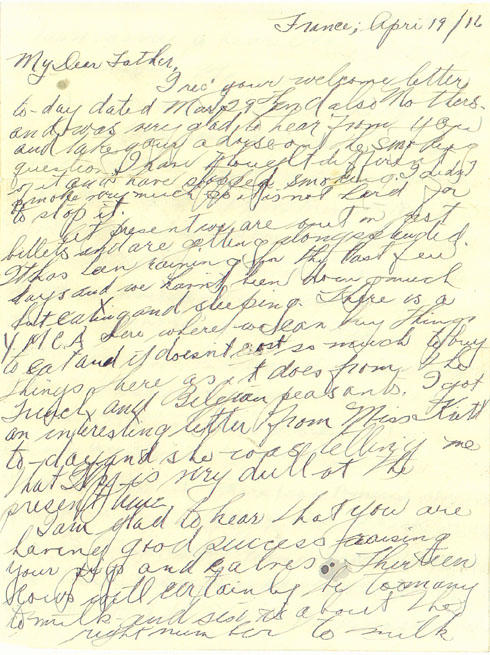 France, April 19/16
My Dear Father,
I rec' your welcome letter
to-day dated Mar 29th and also Mothers.
and was very glad to hear from you
and take your advise on the smoking
question. I have thought different
of it and have stopped smoking. I didn't
smoke very much so it is not hard for
to stop it.
At present we are out in rest
billets and are getting along splended.
It has been raining for the last few
days and we havn't been doing much
but eating and sleeping. There is a
Y.M.C.A here where we can buy things
to eat and it doesn't cost so much to buy
things here as it does from the
French and Belgian peasants. I got
an interesting letter from Miss
to-day and she was telling me
that is very dull at the
present time.
I am glad to hear that you are
having good success raising
your pigs and calves. Thirteen
cows will certainly be to many
to milk and six is about the
right number to milk